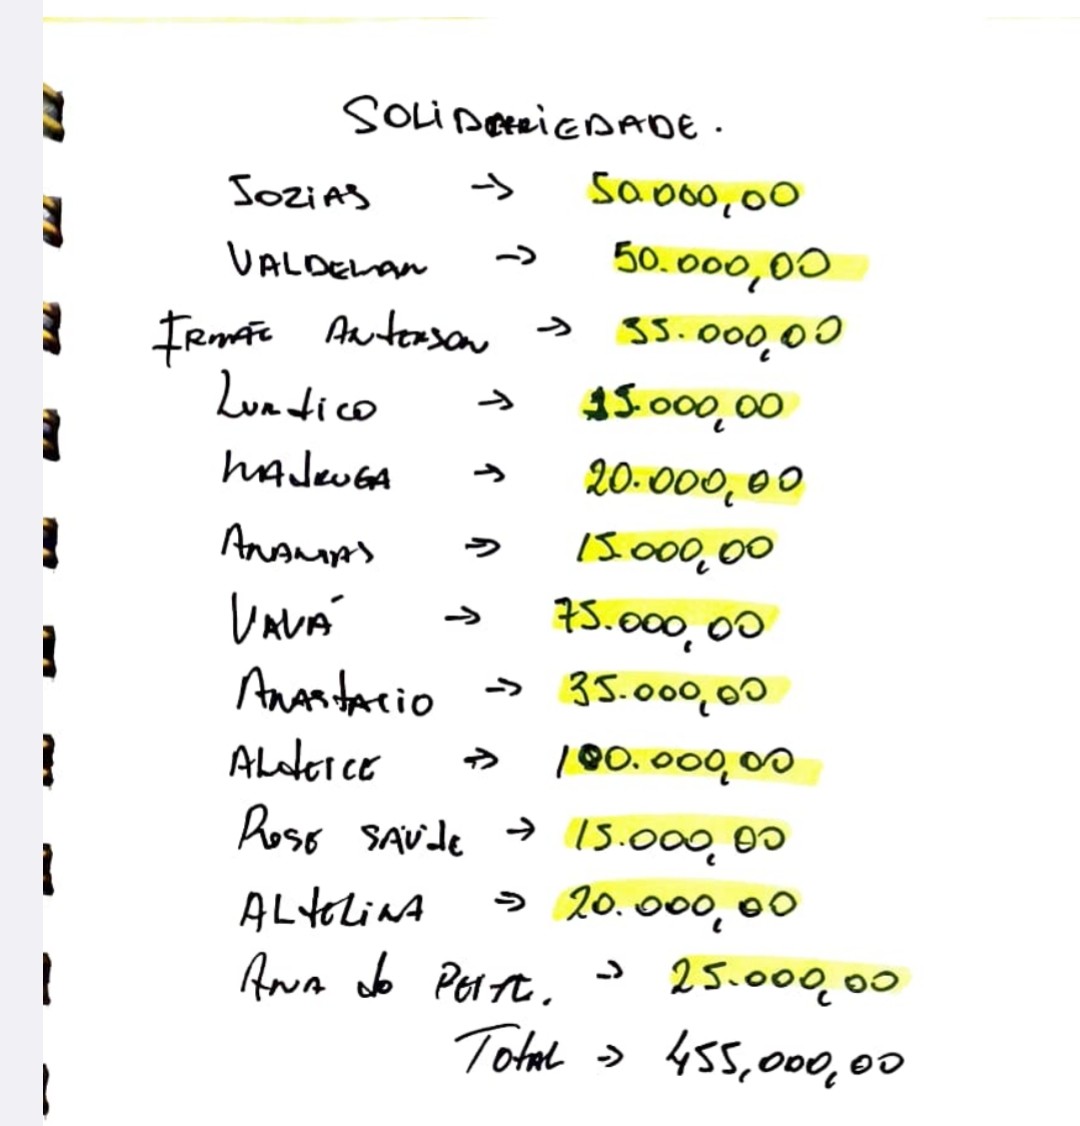 SOLIDARIEDADE.
JOZIAS → 50.000,00
VALDEMAR → 50.000,00
IRMÃO ANDERSON → 35.000,00
→ 15.000,00
MADRUGA → 20.000,00
ANANIAS → 15.000,00
VAVÁ → 75.000,00
ANASTACIO → 35.000,00
ALDEICE → 100.000,00
ROSE SAÚDE → 15.000,00
ALTELINA → 20.000,00
ANA do PEIXE. → 25.000,00
TOTAL → 455,000,00